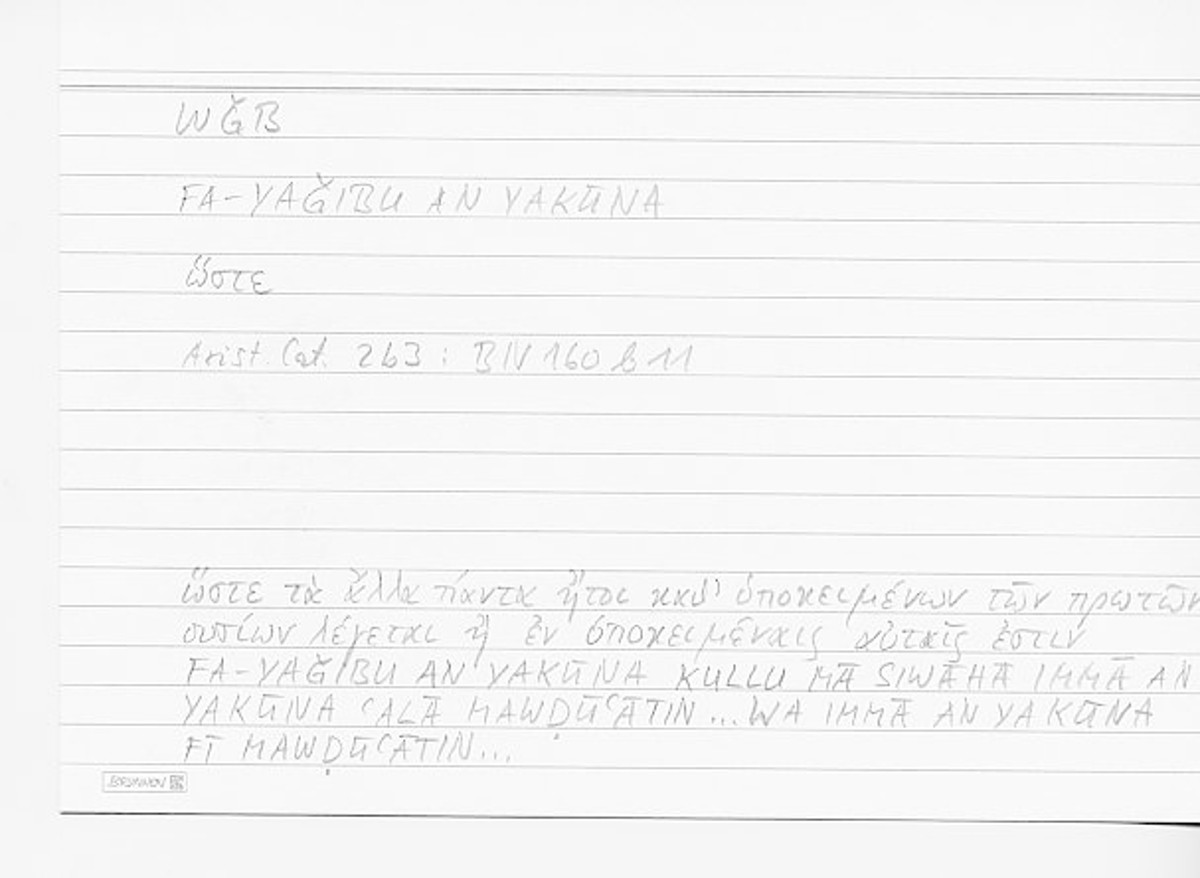 WĞB
FA-YAĞIBU AN YAKŪNA
ὥστε
Arist. Cat. 2b3 : BN 160 b 11
ὥστε τὰ ἄλλα πάντα ἤτοι καθ' ὑποκειμένων τῶν πρωτῶν
ουσίων λέγεται ἢ ἐν ὑποκειμέναις αὐταῖς ἐστιν
FA-YAĞIBU AN YAKŪNA KULLU MĀ SIWĀHĀ IMMĀ AN
YAKŪNA ʿALĀ MAWḌŪʿĀTIN ... WA IMMĀ AN YAKŪNA
FĪ MAWḌŪʿĀTIN...
BRUNNEN